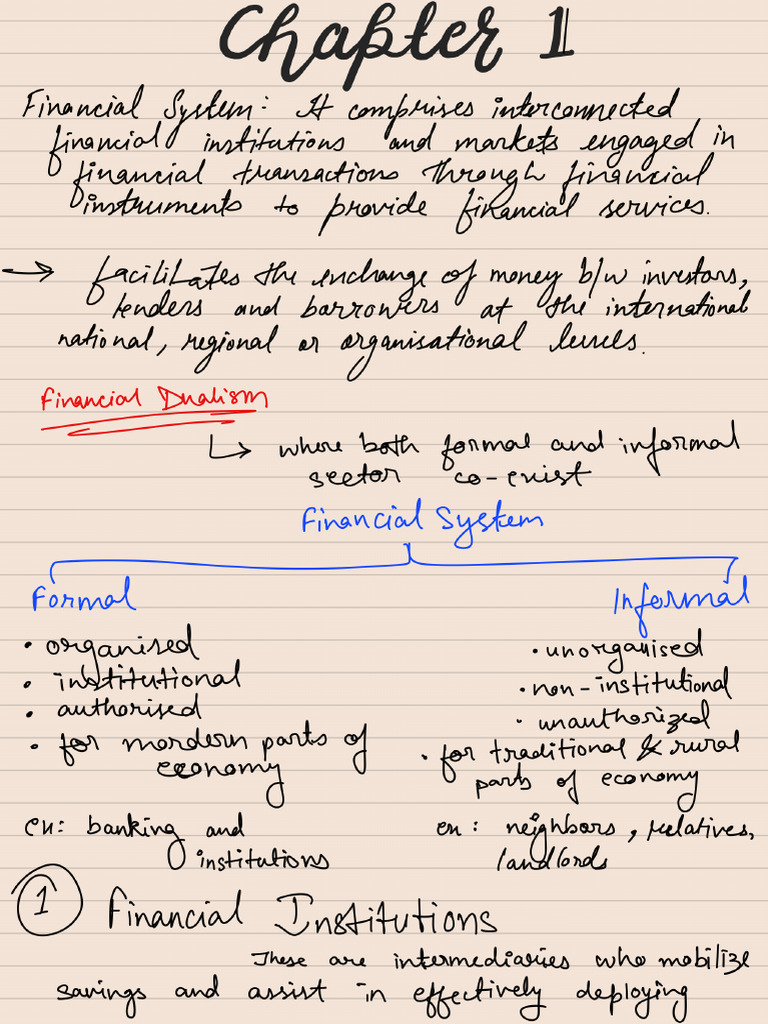 Chapter 1
Financial System: It comprises interconnected
financial institutions and markets engaged in
financial transactions through financial
instruments to provide financial services.
→ facilitates the exchange of money b/w investors,
lenders and borrowers at the international
national, regional or organisational levels.
Financial Dualism
↳ where both formal and informal
sector co-exist
Financial System
Formal
Informal
• organised
• institutional
• authorised
• for mordern parts of
economy
ex: banking and
institutions
• unorganised
• non-institutional
• unauthorized
• for traditional & rural
parts of economy
ex: neighbors, relatives,
landlords
1 Financial Institutions
These are intermediaries who mobilize
savings and assist in effectively deploying